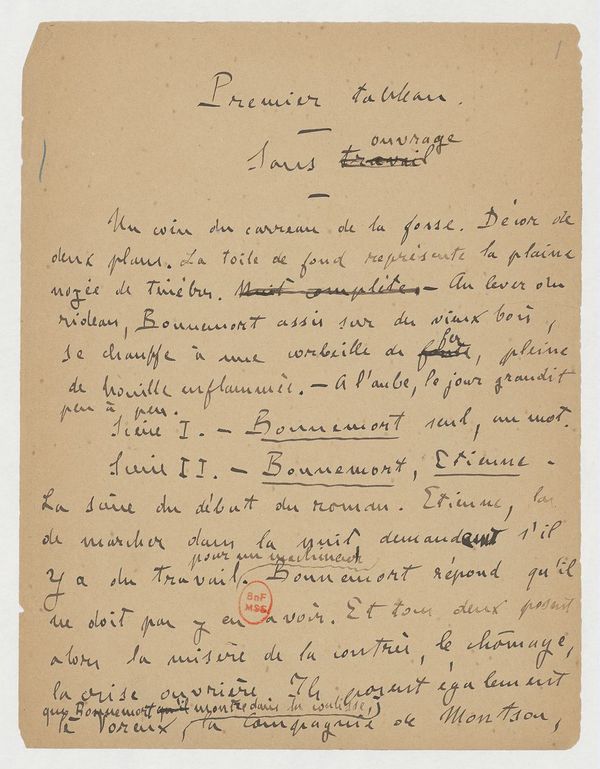 1
Premier tableau.
Sans travail ouvrage
Un coin du carreau de la fosse. Décor de
deux plans. La toile de fond représente la plaine
noyée de ténèbres. Nuit complète. — Au lever du
rideau, Bonnemort assis sur du vieux bois,
se chauffe à une corbeille de fonte fer, pleine
de houille enflammée. — A l'aube, le jour grandit
peu à peu.
Scène I. — Bonnemort seul, un mot.
Scène II. — Bonnemort, Etienne.
La scène du début du roman. Etienne, las
de marcher dans la nuit demande s'il
y a du travail pour un machineur. Bonnemort répond qu'il
ne doit pas y en avoir. Et tous deux posent
alors la misère de la contrée, le chômage,
la crise ouvrière. Ils posent également
le Voreux, que Bonnemort qu'il montre dans la coulisse, la Compagnie de Montsou,
BnF
MSS